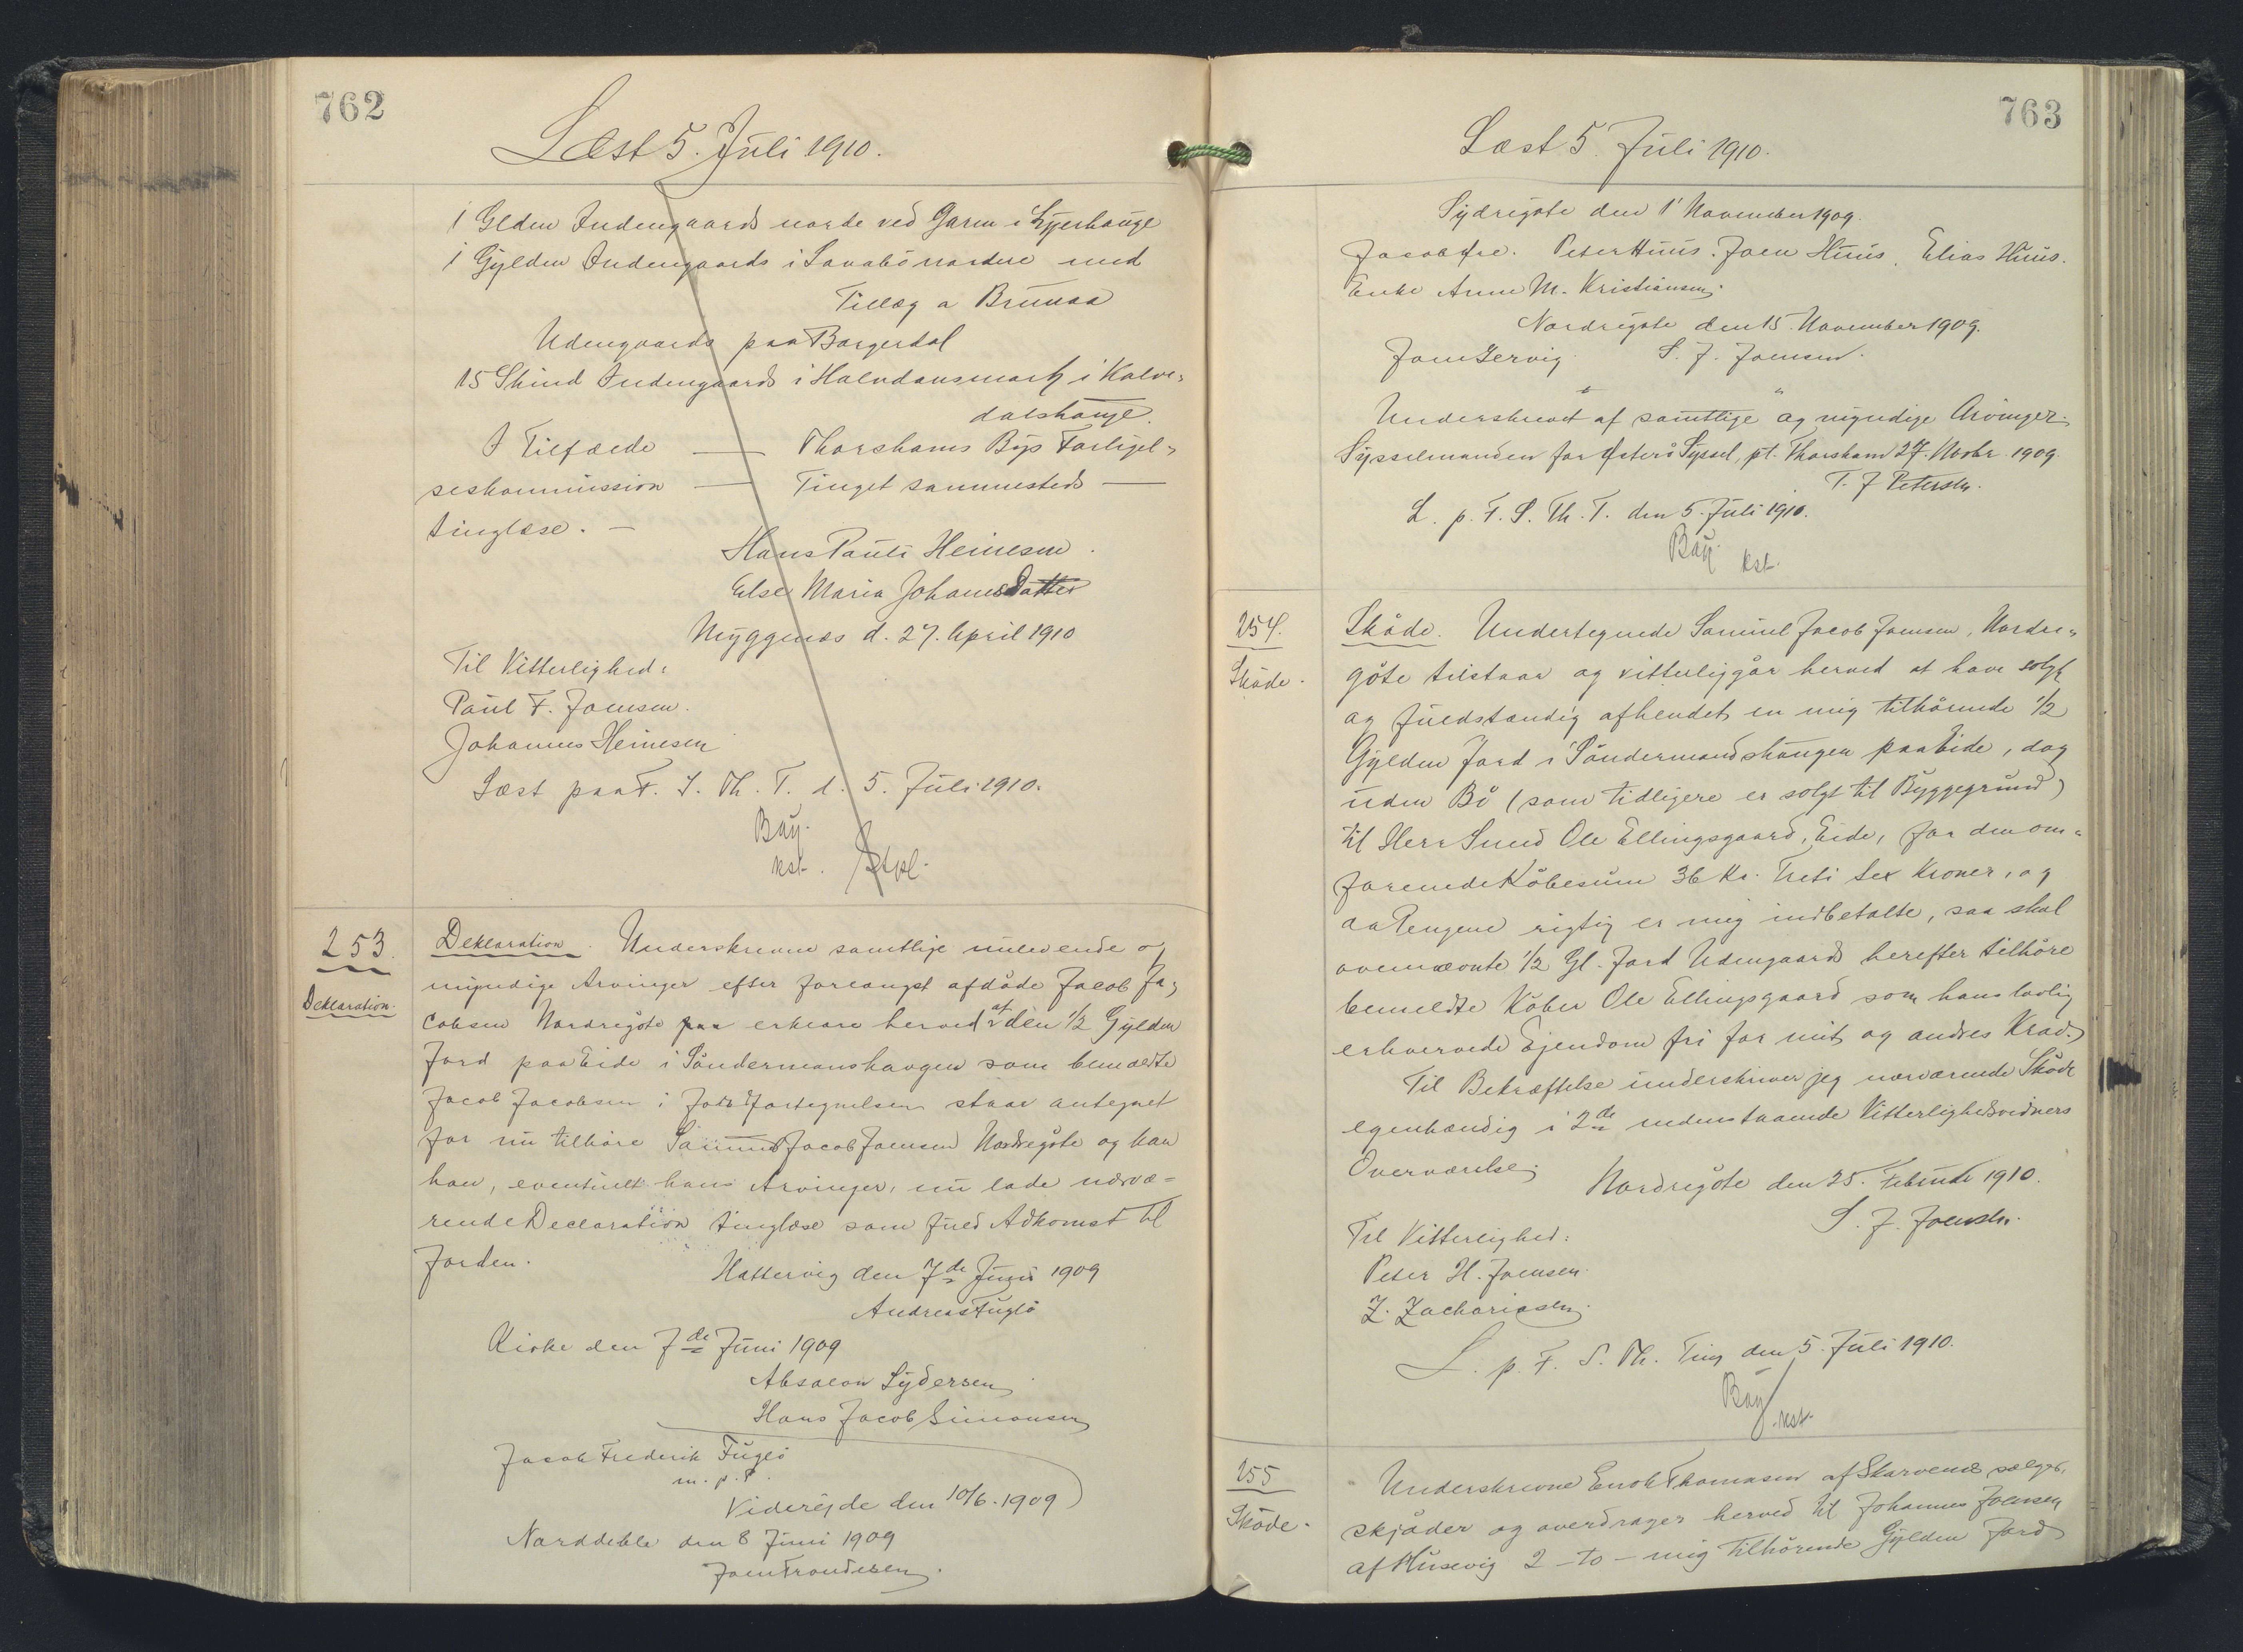 762
Læst 5. Juli 1910.
1 Glden Indengaards norde ved Garen i Lyerhauge
1 Gylden Indengaards i Lavabö nordere med
Tillæg a Brunaa
Udengaards paa Borgerdal
15 Skind Indengaards i Halvdansmark i Kalve-
dalshauge.
I Tilfælde — Thorshavns Bys Forligel-
seskommission — Tinget sammesteds —
tinglæse. —
Hans Pauli Heinesen.
Else Maria JohannesDatter
Myggenæs d. 27. April 1910
Til Vitterlighed:
Paul F. Joensen.
Johannes Heinesen
Læst paa F. S. Th. T. d. 5. Juli 1910.
Bay.
kst. Stpl.
253.
Deklaration.
Deklaration. Underskrevne samtlige nulevende og
myndige Arvinger efter forlængst afdöde Jacob Ja-
cobsen Nordregöte paa erklære herved at den 1/2 Gylden
Jord paa Eide i Söndermanshaugen som bemeldte
Jacob Jacobsen i Jordfortegnelsen staar antegnet
for nu tilhöre Samuel Jacob Joensen Nordregöte og kan
han, eventuelt hans Arvinger, nu lade nærvæ-
rende Declaration tinglæse som fuld Adkomst til
Jorden.
Hattervig den 7de Juni 1909
Andreas Fuglö
Kirke den 7de Juni 1909
Absalon Lydersen
Hans Jacob Simonsen
Jacob Frederik Fuglö
m. p. P.
Videreide den 10/6. 1909
Norddeble den 8 Juni 1909
Joen Trondesen.
763
Læst 5. Juli 1910.
Sydregöte den 1' November 1909.
Jacob Öre. Peter Huus. Joen Huus, Elias Huus.
Enke Anne M. Kristiansen.
Nordregöte den 15. November 1909.
Joen Gervig. S. J. Joensen.
Underskrevet af samtlige og myndige Arvinger.
Sysselmanden for Österö Syssel, pt. Thorshavn 27. Novbr. 1909.
T. J Petersen.
L. p. F. S. Th. T. den 5. Juli 1910.
Bay.
kst.
254.
Sköde.
Sköde. Undertegnede Samuel Jacob Joensen, Nordre-
göte tilstaar og vitterliggör herved at have solgt
og fuldstændig afhendet en mig tilhörende 1/2
Gylden Jord i Söndermandshaugen paa Eide, dog
uden Bö (som tidligere er solgt til Byggegrund)
til Herr Smed Ole Ellingsgaard, Eide, for den om-
forenede Köbesum 36 Kr. Treti sex Kroner, og
da Pengene rigtig er mig indbetalte, saa skal
ovennævnte 1/2 Gl. Jord Udengaards herefter tilhöre
bemeldte Köber Ole Ellingsgaard som hans lovlig
erhvervede Ejendom fri for mit og andres Krav.
Til Bekræftelse underskriver jeg nærværende Sköde
egenhændig i 2de nedenstaaende Vitterlighedsvidners
Overværelse;
Nordregöte den 25. Februar 1910.
S. J. Joensen.
Til Vitterlighed:
Peter H. Joensen.
Z. Zachariasen.
L. p. F. S. Th. Ting den 5. Juli 1910.
Bay
kst.
255
Sköde.
Underskrevne Enok Thomasen af Skarvenæs sælger,
skjöder og overdrager herved til Johannes Joensen
af Husevig 2 - to - mig tilhörende Gylden Jord